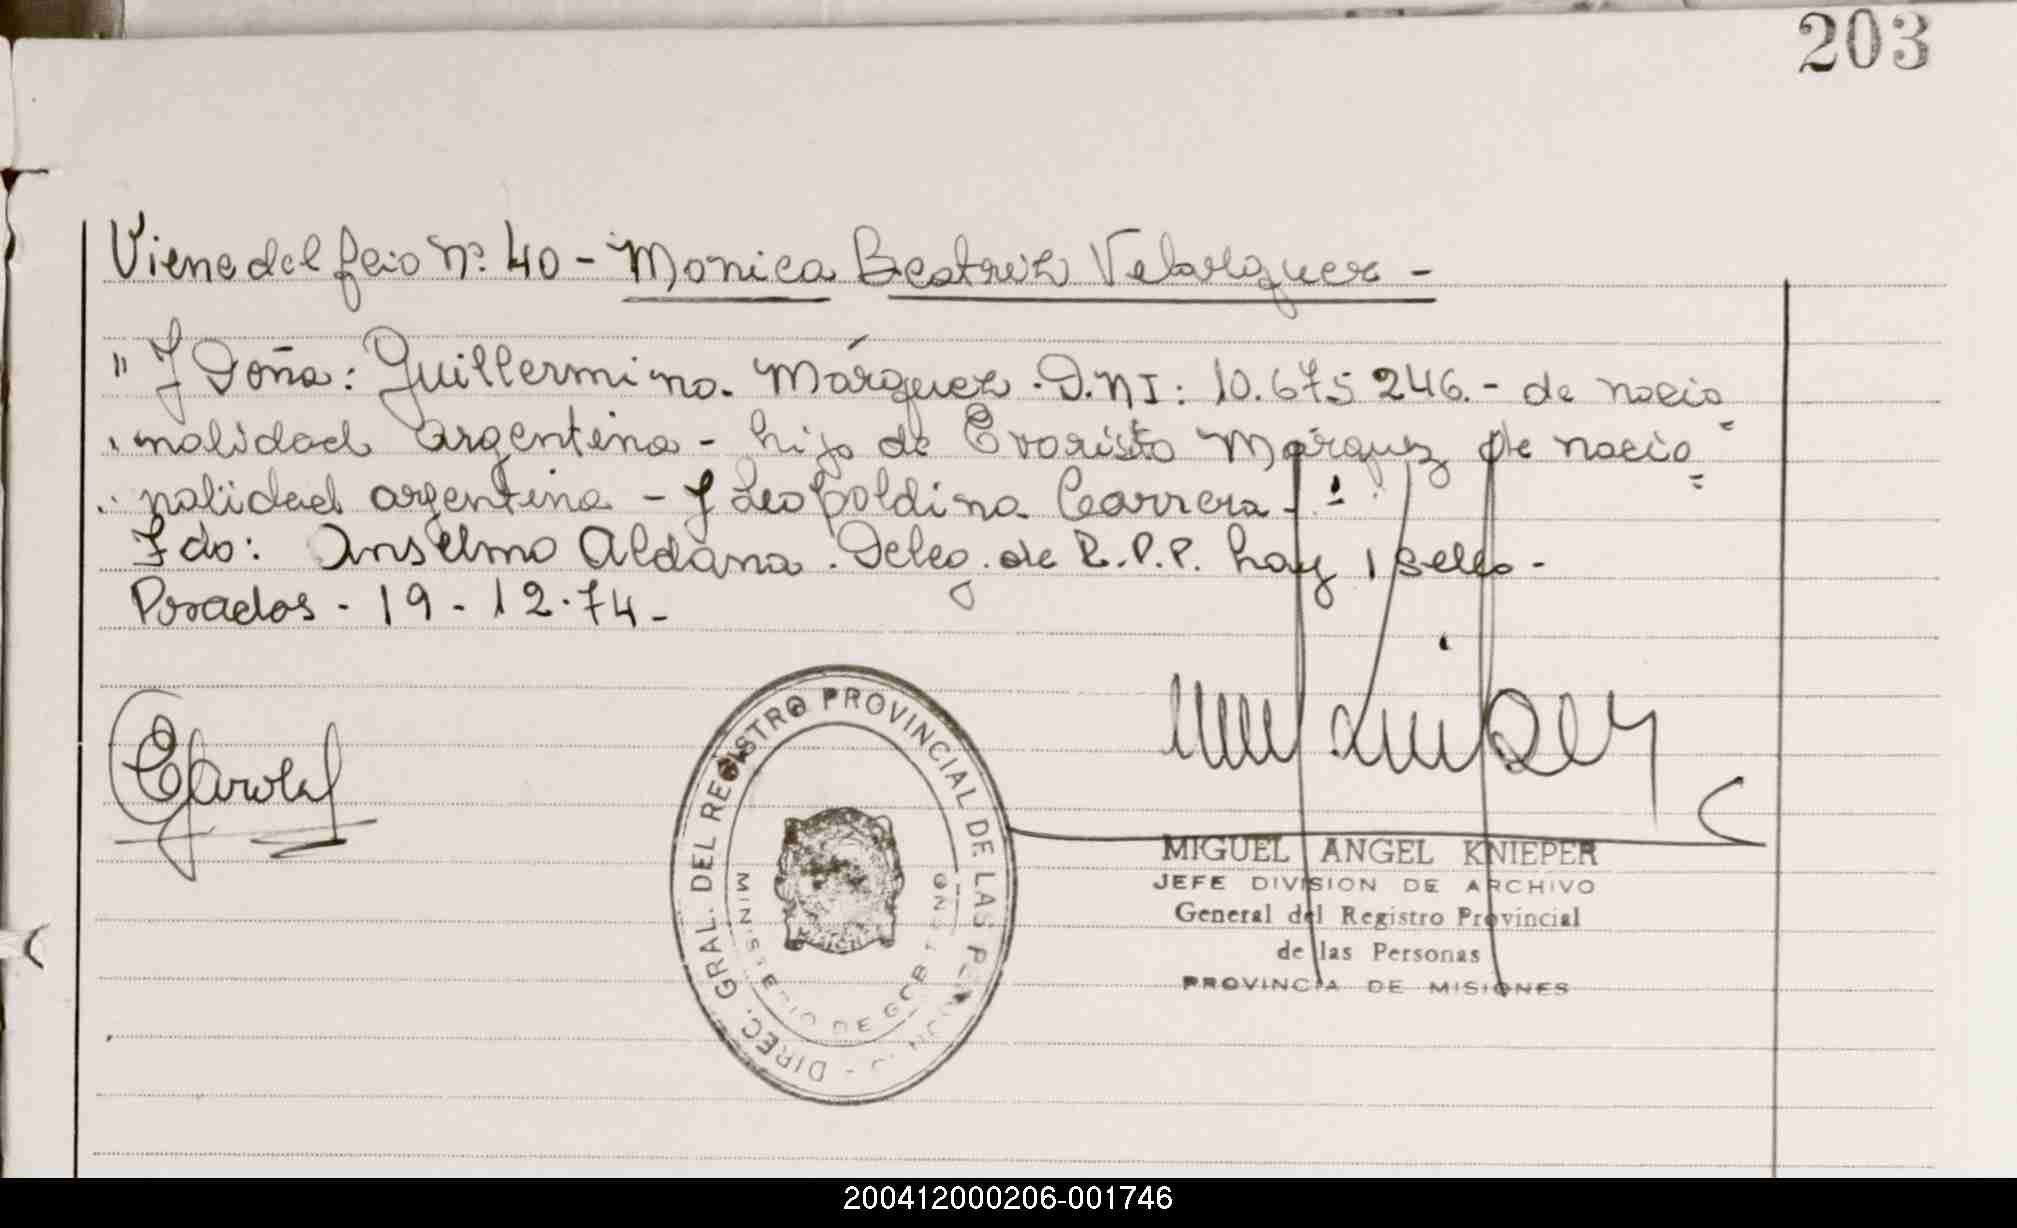 203
Viene del feio Nº 40 - Monica Beatriz Velazquez -
" Y Doña: Guillermina Márquez. D.N.I: 10.675 246.- de nacio
nalidad argentina - hija de Evaristo Márquez de nacio=
nalidad argentina - y Leopoldina Carrera -
Fdo: Anselmo Aldana. Deleg. de R.P.P. hay 1 sello -
Posadas - 19 - 12.74 -
DIREC. GRAL. DEL REGISTRO PROVINCIAL DE LAS
MINISTERIO DE GOBIERNO
MIGUEL ANGEL KNIEPER
JEFE DIVISION DE ARCHIVO
General del Registro Provincial
de las Personas
PROVINCIA DE MISIONES
200412000206-001746